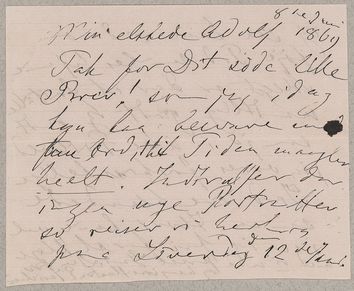 8de Juni
Min elskede Adolf 1869
Tak for Dit søde lille
Brev! som jeg idag
kun kan besvare med
faa Ord, thi Tiden mangler
heelt. Indtræffer der
ingen nye Portrætter
så reiser vi herfra
paa Løverdag d 12de Juni.